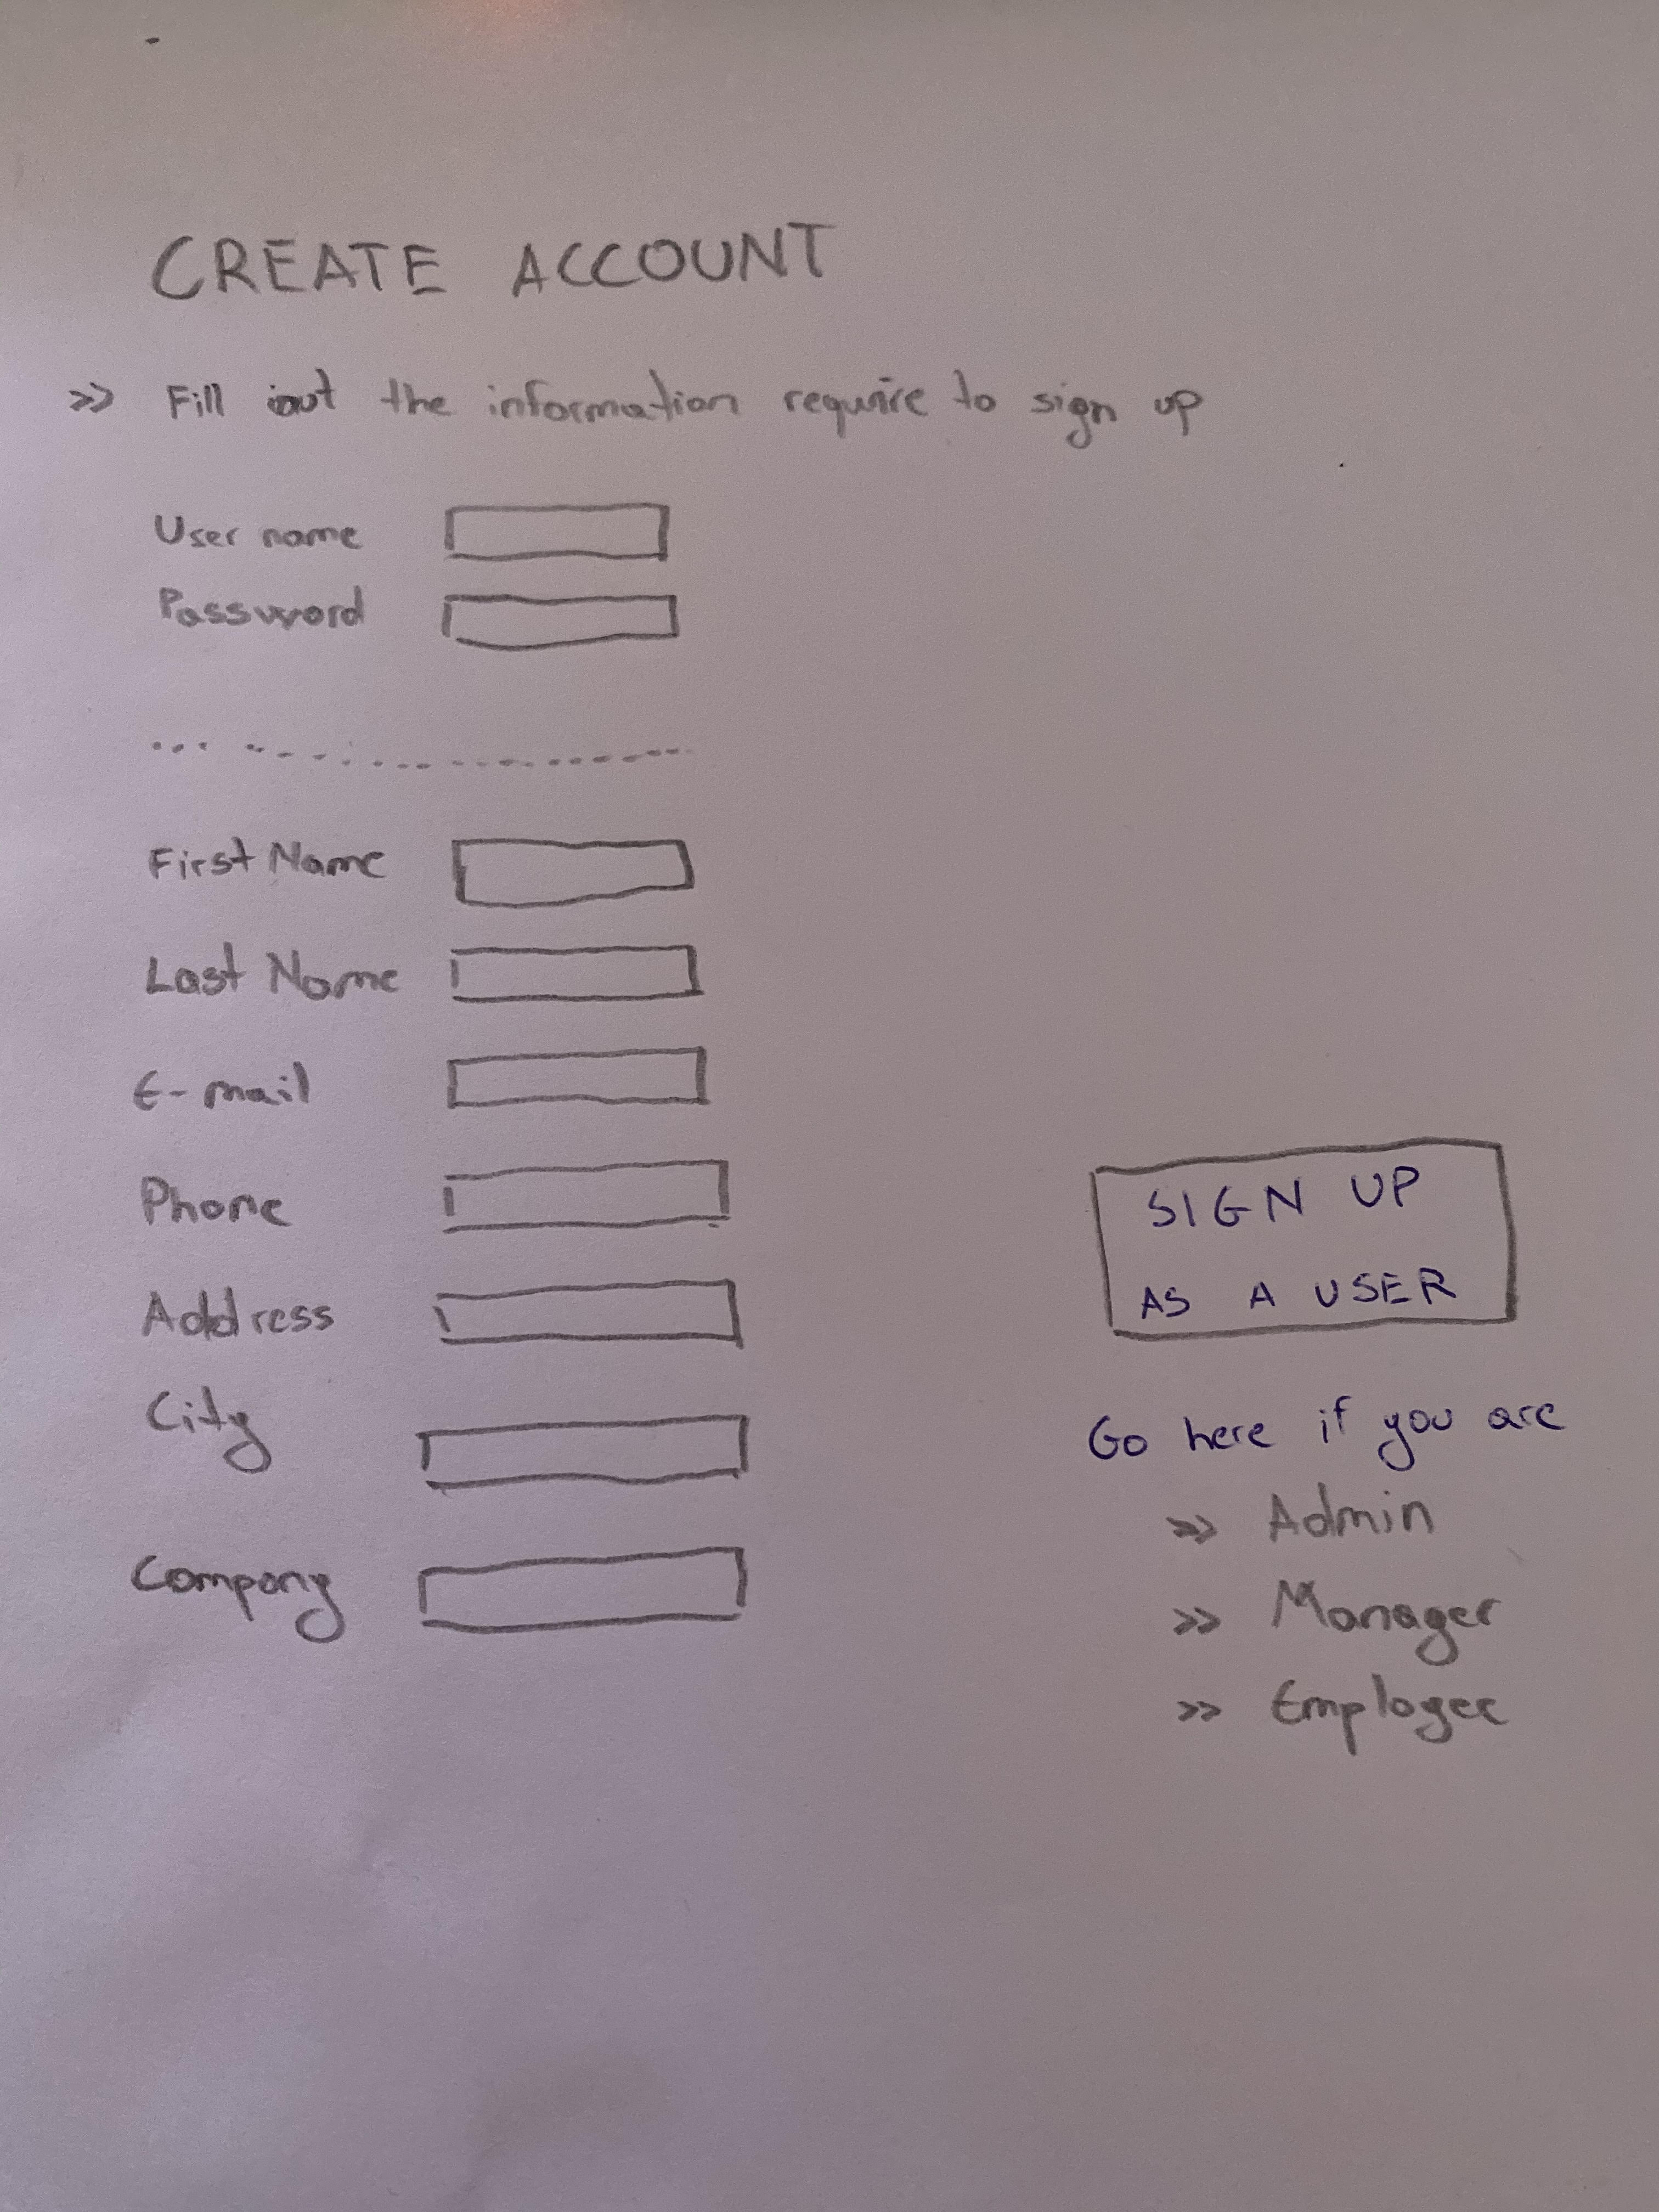 CREATE ACCOUNT
>> Fill out the information require to sign up
User name
Password
First Name
Last Name
E-mail
Phone
Address
City
Company
SIGN UP
AS A USER
Go here if you are
>> Admin
>> Manager
>> Employee